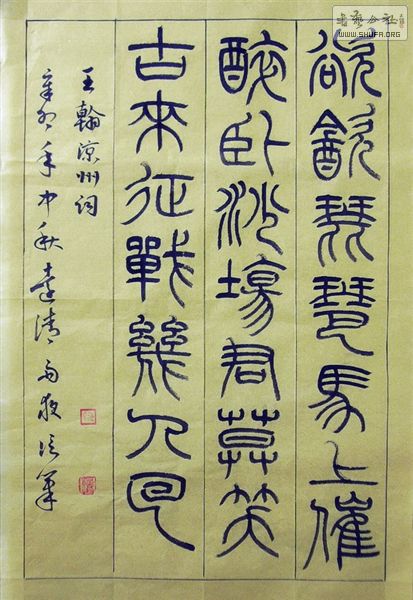 书艺公社
WWW.SHUFA.ORG
欲飲琵琶馬上催
醉臥沙場君莫笑
古來征戰幾人回
王翰凉州词
辛卯年中秋